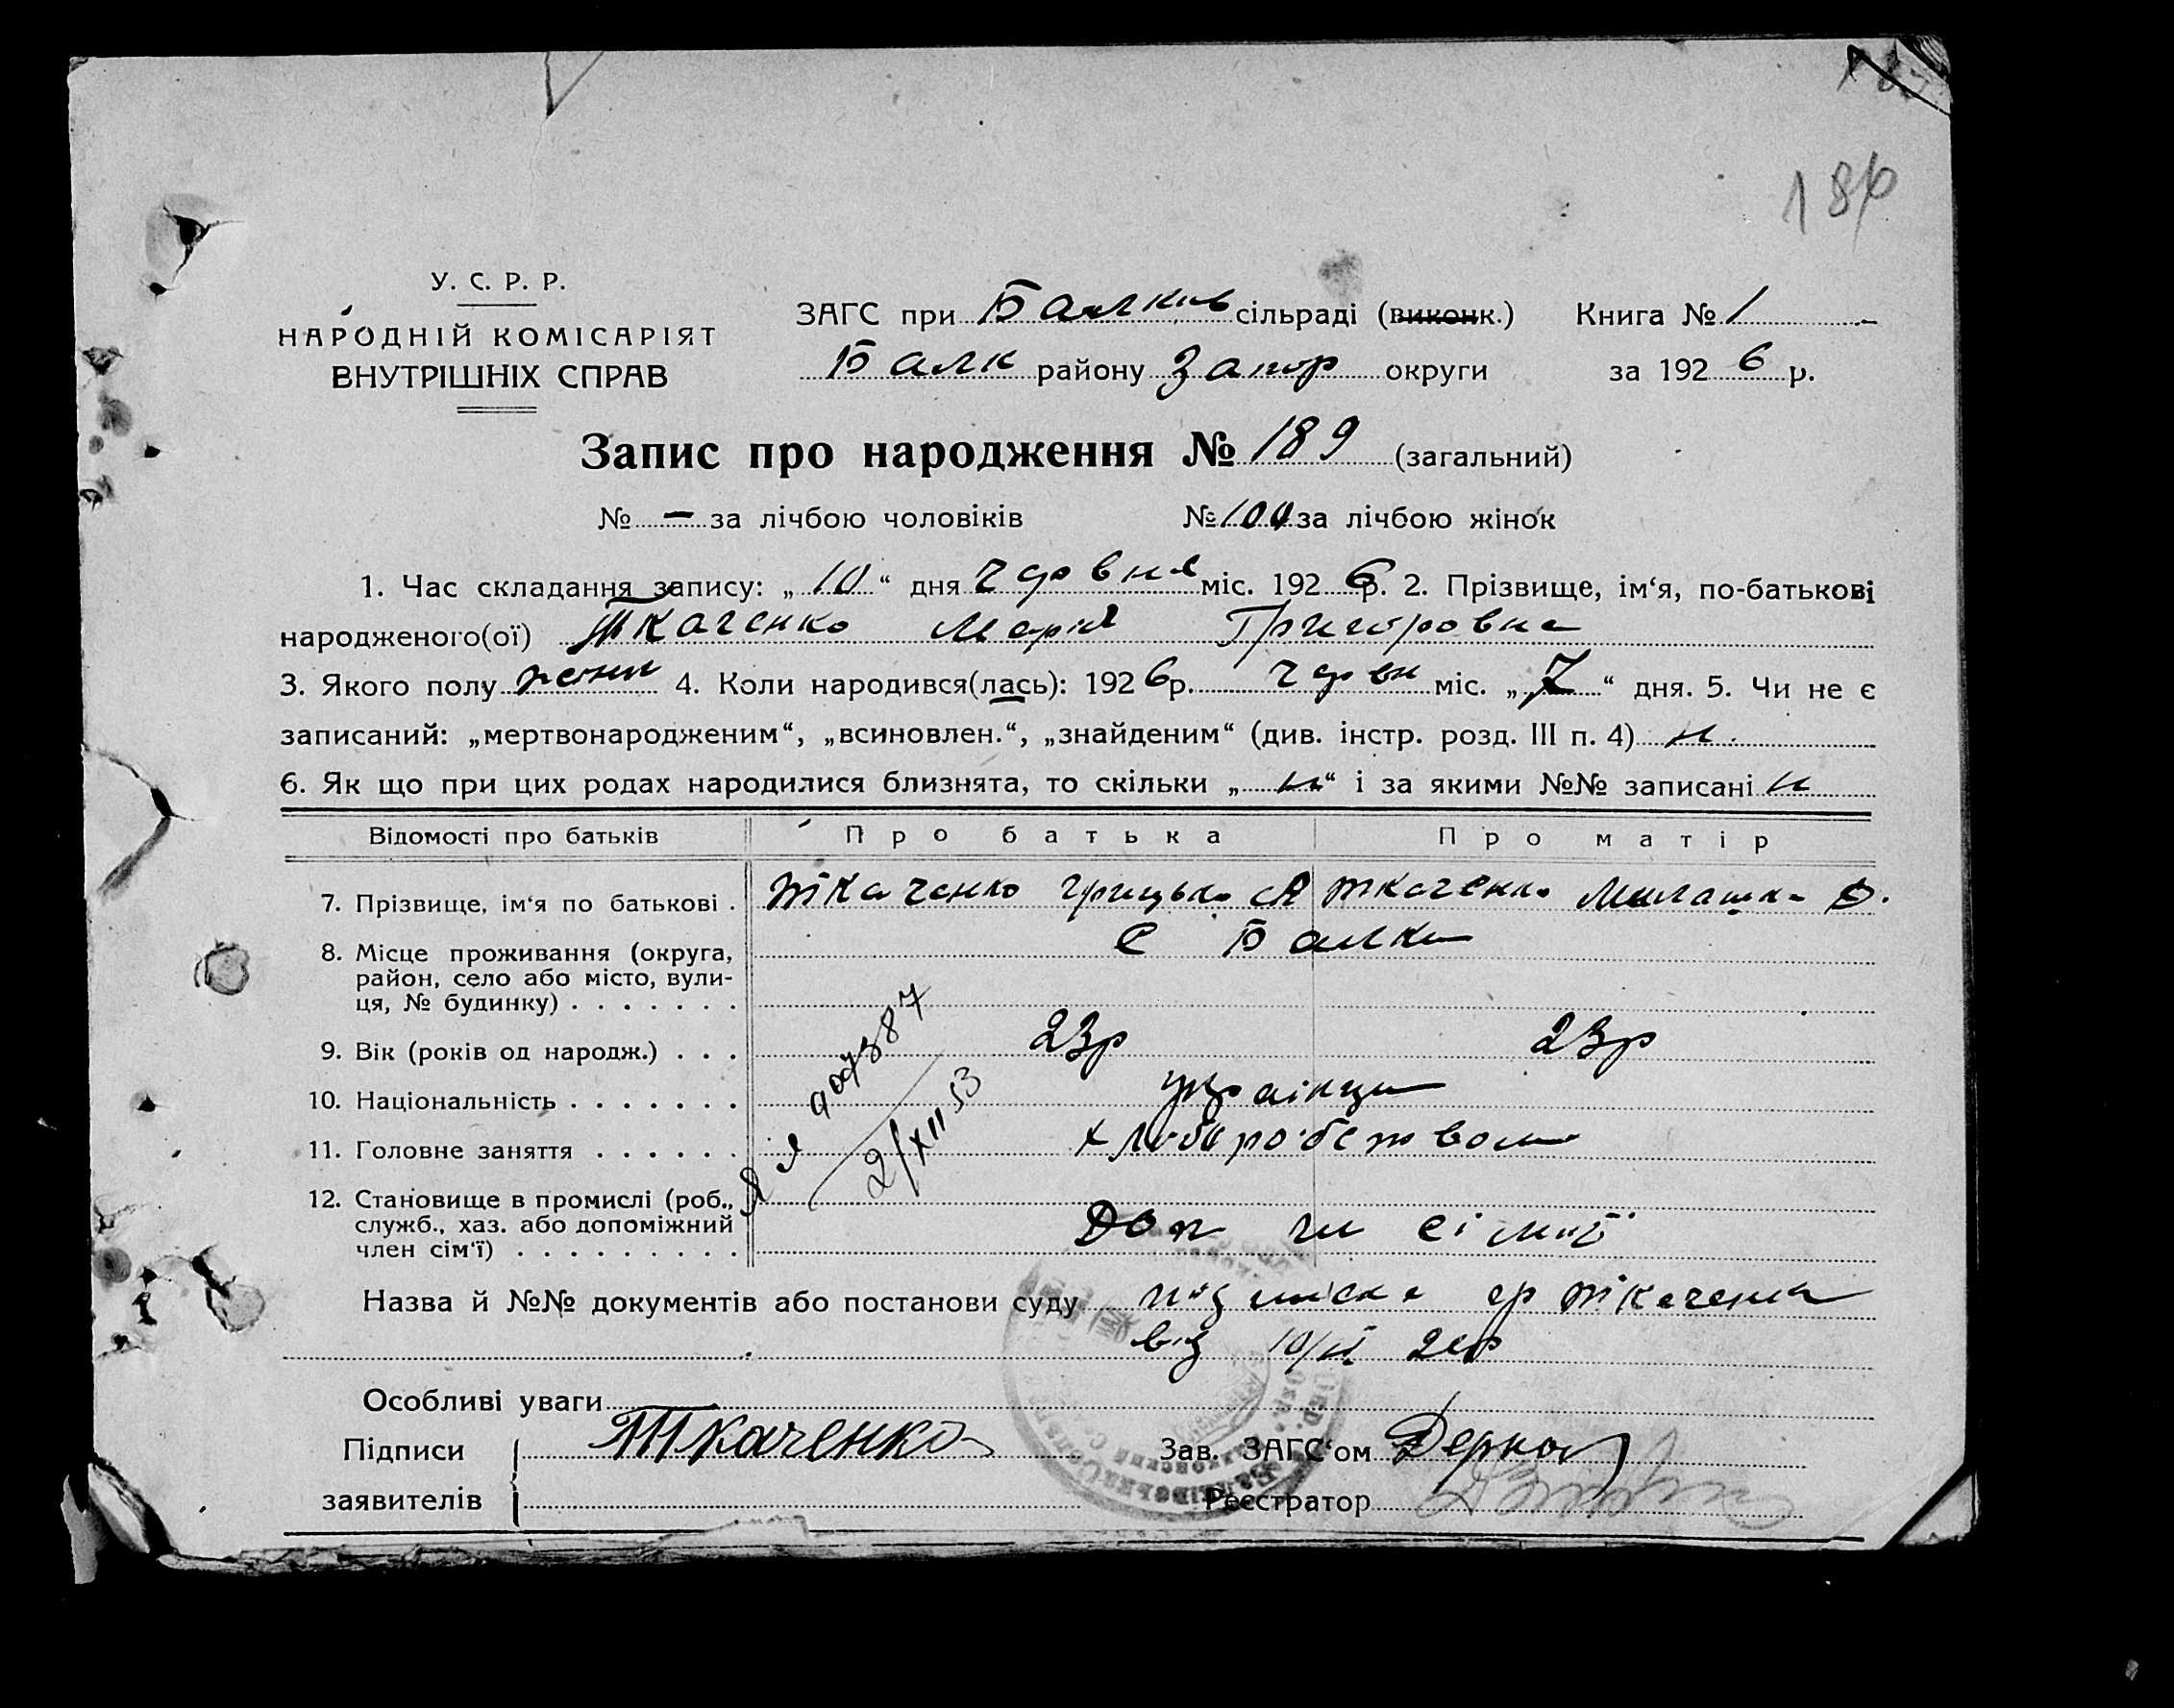 186
У. С. Р. Р.
НАРОДНІЙ КОМІСАРІЯТ
ВНУТРІШНІХ СПРАВ
ЗАГС при Балків сільраді (виконк.) Книга № 1
Балк району Запор округи за 1926 р.
Запис про народження № 189 (загальний)
№ — за лічбою чоловіків № 100 за лічбою жінок
1. Час складання запису: „10“ дня червня міс. 1926 р. 2. Прізвище, ім‘я, по-батькові
народженого(ої) Ткаченко Марія Григоровна
3. Якого полу жіноч 4. Коли народився(лась): 1926р. червн міс. „7“ дня. 5. Чи не є
записаний: „мертвонародженим“, „всиновлен.“, „знайденим“ (див. інстр. розд. III п. 4) н.
6. Як що при цих родах народилися близнята, то скільки „н“ і за якими №№ записані н
Відомості про батьків Про батька Про матір
7. Прізвище, ім‘я по батькові . Ткаченко Грицько А Ткаченко Милашка
8. Місце проживання (округа, с Балки
район, село або місто, вули-
ця, № будинку) . . . . . . .
9. Вік (років од народж.) . . . 23р 23р
10. Національність . . . . . . . українци
11. Головне заняття . . . . . . хліборобством
12. Становище в промислі (роб.,
служб., хаз. або допоміжний
член сім‘ї) . . . . . . . . . Доп чл сімії
2/XII 53
Назва й №№ документів або постанови суду підписка гр Ткаченка
від 10/VI 26р
Особливі уваги
Підписи Ткаченко Зав. ЗАГС‘ом
заявителів Реєстратор